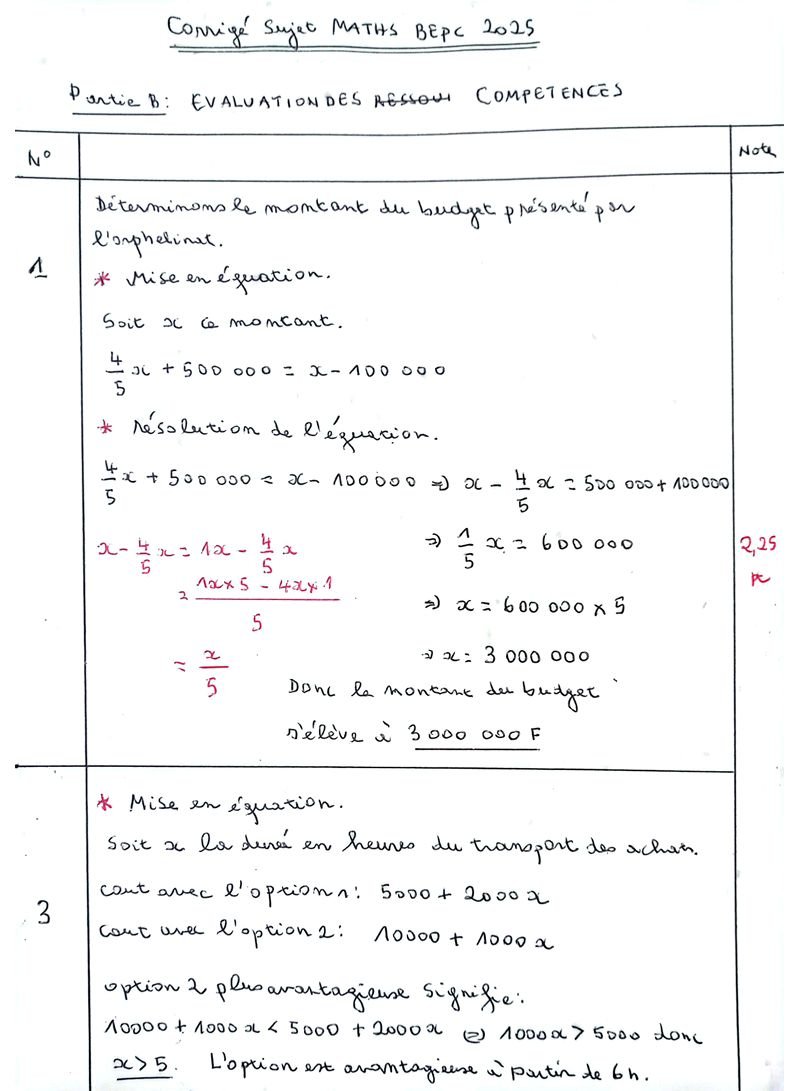 Corrigé Sujet MATHS BEPC 2025
Partie B: EVALUATION DES RESSOU COMPETENCES
N° Note
Déterminons le montant du budget présenté par
l'orphelinat.
1
* Mise en équation.
Soit x ce montant.
4/5 x + 500 000 = x - 100 000
* Résolution de l'équation.
4/5 x + 500 000 = x - 100 000 ⇒ x - 4/5 x = 500 000 + 100 000
⇒ 1/5 x = 600 000
x - 4/5 x = 1x - 4/5 x
2,25 pt
= (1x × 5 - 4x × 1)/5
⇒ x = 600 000 × 5
= x/5
⇒ x = 3 000 000
Donc le montant du budget
s'élève à 3 000 000 F
* Mise en équation.
Soit x la dureé en heures du transport des achats.
3
cout avec l'option 1: 5000 + 2000 x
cout avec l'option 2: 10000 + 1000 x
option 2 plus avantagieuse signifie:
10000 + 1000 x < 5000 + 2000 x ⇔ 1000 x > 5000 donc
x > 5. L'option est avantagieuse à partir de 6 h.